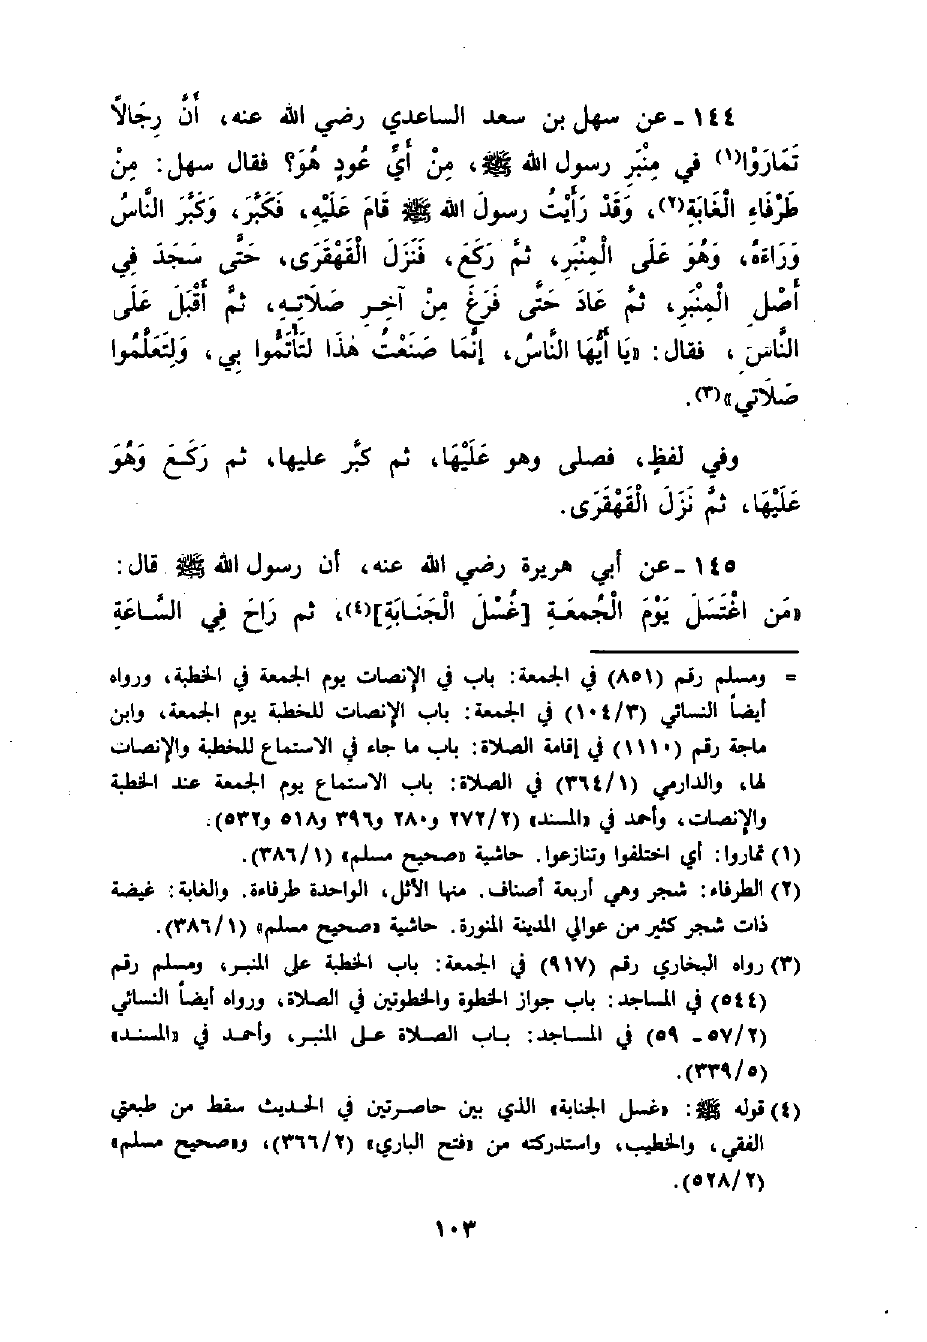 ١٤٤ ـ عن سهل بن سعد الساعدي رضي الله عنه، أَنَّ رِجَالاً
تَمَارَوْا(١) في مِنْبَرِ رسول الله ﷺ، مِنْ أَيِّ عُودٍ هُوَ؟ فقال سهل: مِنْ
طَرْفَاءِ الْغَابَةِ(٢)، وَقَدْ رَأَيْتُ رسولَ الله ﷺ قَامَ عَلَيْهِ، فَكَبَّرَ، وَكَبَّرَ النَّاسُ
وَرَاءَهُ، وَهُوَ عَلَى الْمِنْبَرِ، ثمَّ رَكَعَ، فَنَزَلَ الْقَهْقَرَى، حَتَّى سَجَدَ فِي
أَصْلِ الْمِنْبَرِ، ثمَّ عَادَ حَتَّى فَرَغَ مِنْ آخِرِ صَلَاتِهِ، ثمَّ أَقْبَلَ عَلَى
النَّاسِ، فقال: «يَا أَيُّهَا النَّاسُ، إِنَّمَا صَنَعْتُ هٰذَا لتَأْتَمُّوا بِي، وَلِتَعَلَّمُوا
صَلَاتي»(٣).
وفي لفظٍ، فصلى وهو عَلَيْهَا، ثم كبَّر عليها، ثم رَكَعَ وَهُوَ
عَلَيْهَا، ثمَّ نَزَلَ الْقَهْقَرَى.
١٤٥ ـ عن أبي هريرة رضي الله عنه، أن رسول الله ﷺ قال:
«مَن اغْتَسَلَ يَوْمَ الْجُمعَةِ [غُسْلَ الْجَنَابَةِ](٤)، ثم رَاحَ فِي السَّاعَةِ
= ومسلم رقم (٨٥١) في الجمعة: باب في الإنصات يوم الجمعة في الخطبة، ورواه
أيضاً النسائي (٣/ ١٠٤) في الجمعة: باب الإنصات للخطبة يوم الجمعة، وابن
ماجة رقم (١١١٠) في إقامة الصلاة: باب ما جاء في الاستماع للخطبة والإنصات
لها، والدارمي (١/ ٣٦٤) في الصلاة: باب الاستماع يوم الجمعة عند الخطبة
والإنصات، وأحمد في «المسند» (٢/ ٢٧٢ و٢٨٠ و٣٩٦ و٥١٨ و٥٣٢).
(١) تماروا: أي اختلفوا وتنازعوا. حاشية «صحيح مسلم» (١/ ٣٨٦).
(٢) الطرفاء: شجر وهي أربعة أصناف. منها الأثل، الواحدة طرفاءة. والغابة: غيضة
ذات شجر كثير من عوالي المدينة المنورة. حاشية «صحيح مسلم» (١/ ٣٨٦).
(٣) رواه البخاري رقم (٩١٧) في الجمعة: باب الخطبة على المنبر، ومسلم رقم
(٥٤٤) في المساجد: باب جواز الخطوة والخطوتين في الصلاة، ورواه أيضاً النسائي
(٢/ ٥٧ ـ ٥٩) في المساجد: باب الصلاة على المنبر، وأحمد في «المسند»
(٥/ ٣٣٩).
(٤) قوله ﷺ: «غسل الجنابة» الذي بين حاصرتين في الحديث سقط من طبعتي
الفقي، والخطيب، واستدركته من «فتح الباري» (٢/ ٣٦٦)، و«صحيح مسلم»
(٢/ ٥٢٨).
١٠٣